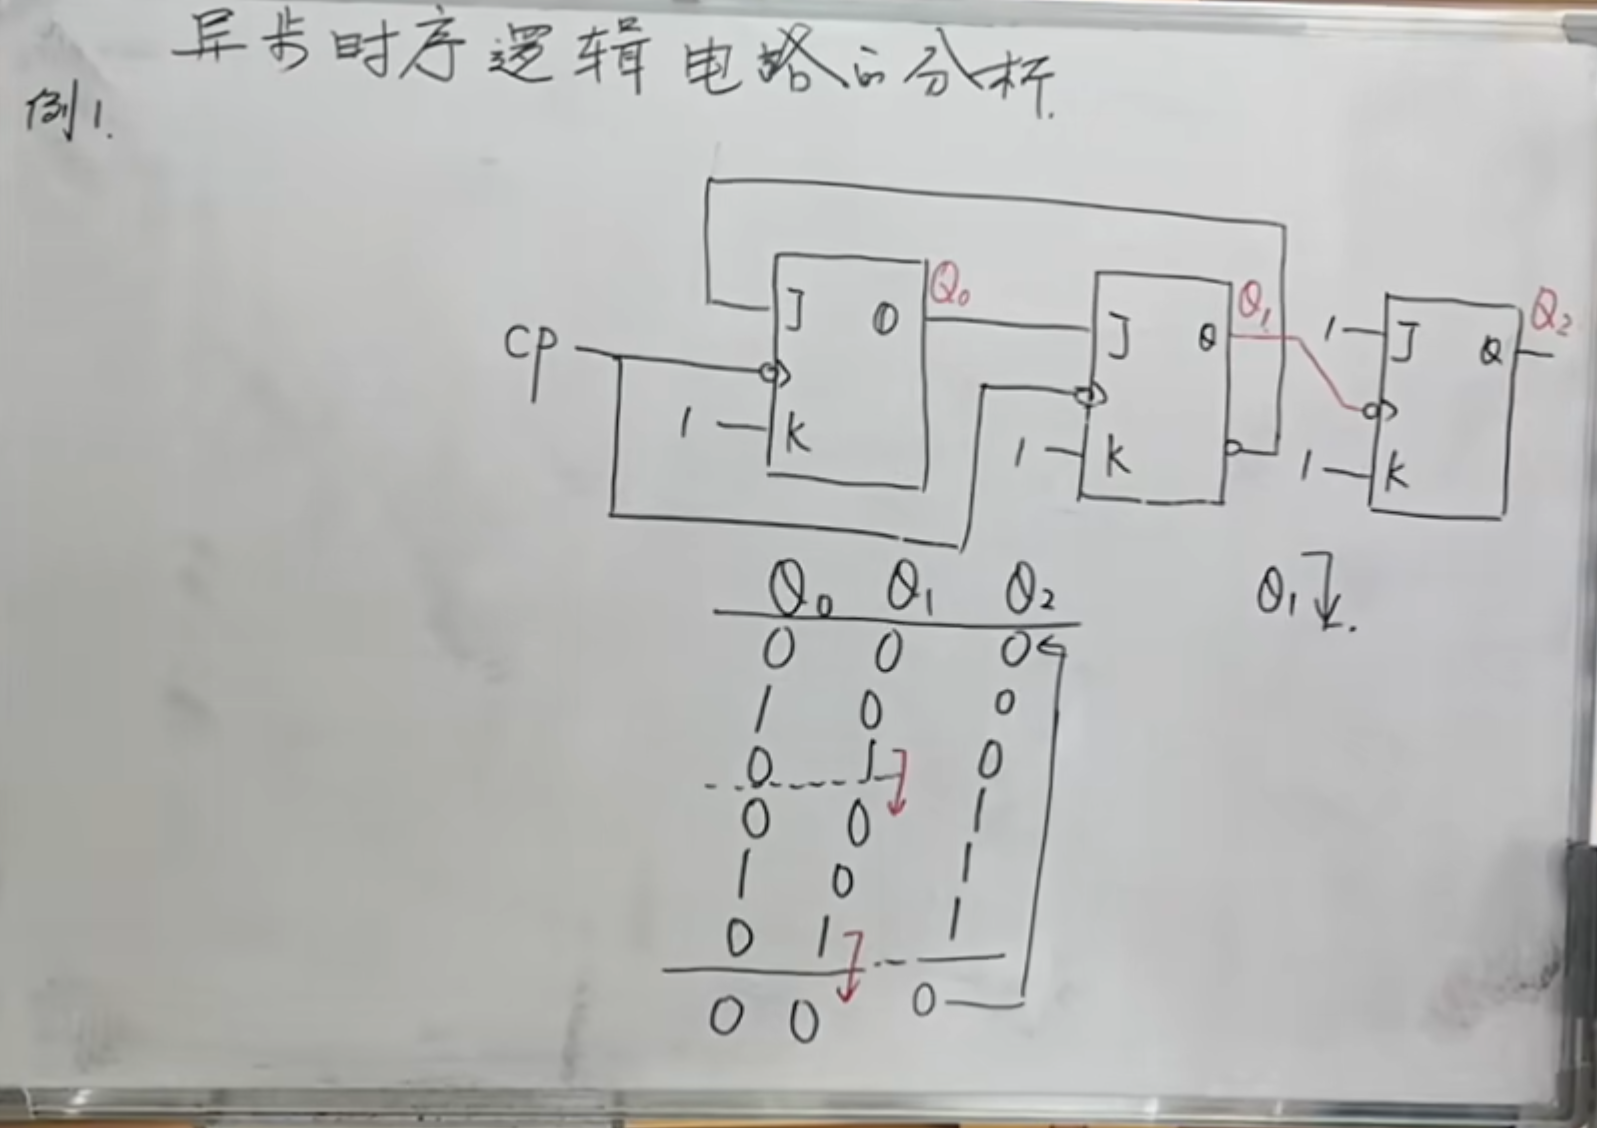 异步时序逻辑电路的分析.
例1.
Q₀ Q₁ Q₂
J Q J Q 1 J Q
CP
1 K 1 K 1 K
Q₀ Q₁ Q₂
Q₁↓.
0 0 0
1 0 0
0 1 0
0 0 1
1 0 1
0 1 1
0 0 0